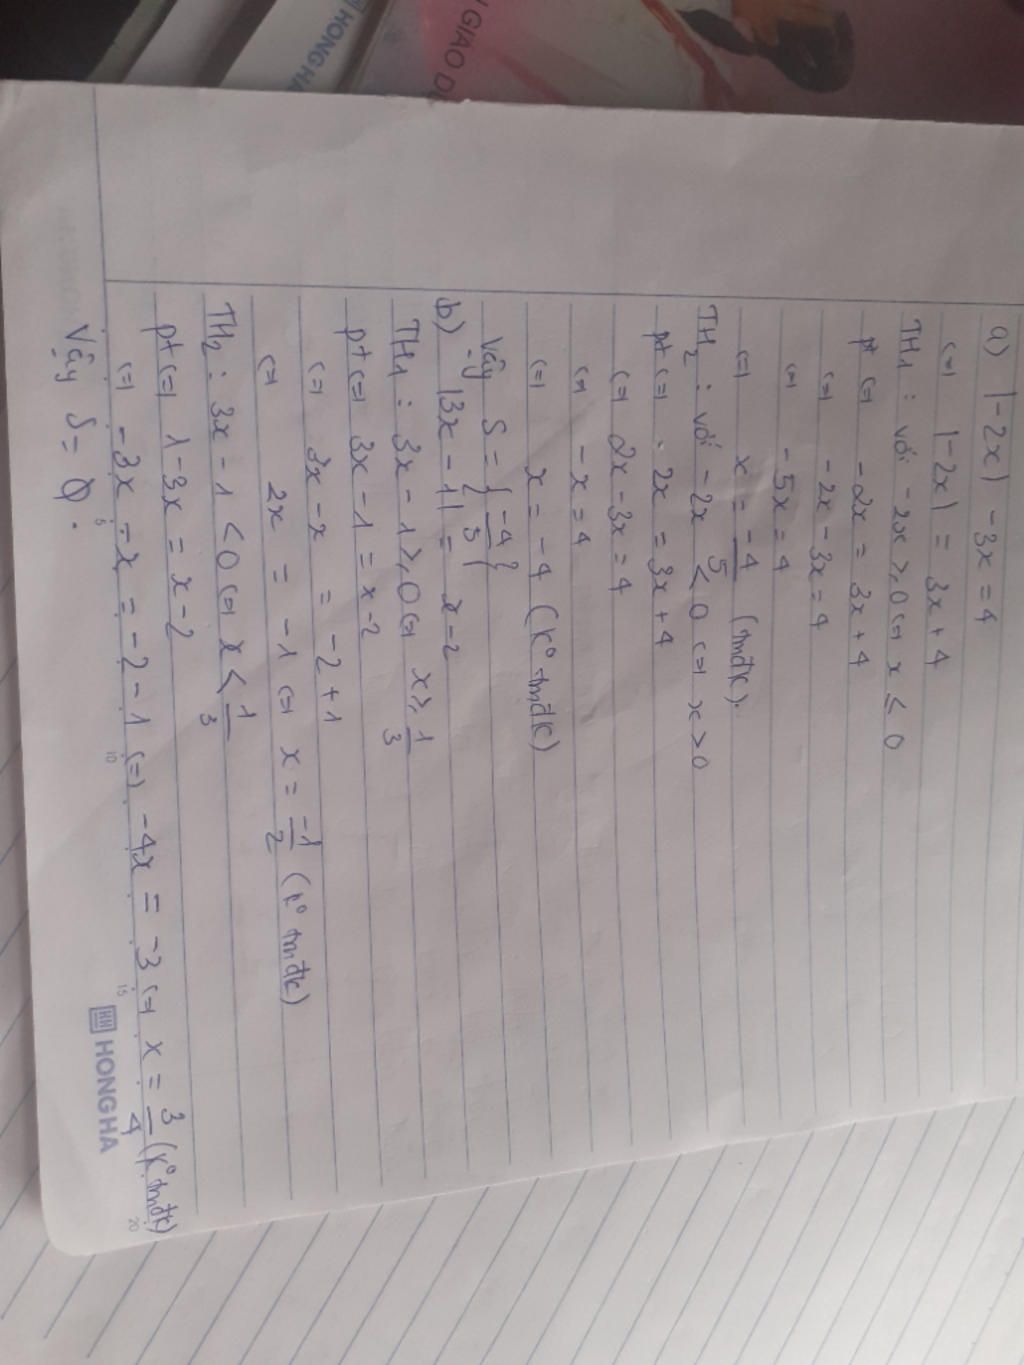 HONG HA
GIAO D
a) |-2x| - 3x = 4
(=) |-2x| = 3x + 4
TH1: với -2x ≥ 0 (=) x ≤ 0
pt (=) -2x = 3x + 4
(=) -2x - 3x = 4
(=) -5x = 4
(=) x = -4/5 (tmđk).
TH2: với -2x < 0 (=) x > 0
pt (=) 2x = 3x + 4
(=) 2x - 3x = 4
(=) -x = 4
(=) x = -4 (k° tmđk)
Vậy S = {-4/5}
b) |3x - 1| = x - 2
TH1: 3x - 1 ≥ 0 (=) x ≥ 1/3
pt (=) 3x - 1 = x - 2
(=) 3x - x = -2 + 1
(=) 2x = -1 (=) x = -1/2 (k° tmđk)
TH2: 3x - 1 < 0 (=) x < 1/3
pt (=) 1 - 3x = x - 2
(=) -3x - x = -2 - 1 (=) -4x = -3 (=) x = 3/4 (k° tmđk)
Vậy S = ∅.
5 10 15 20
HH HONG HA